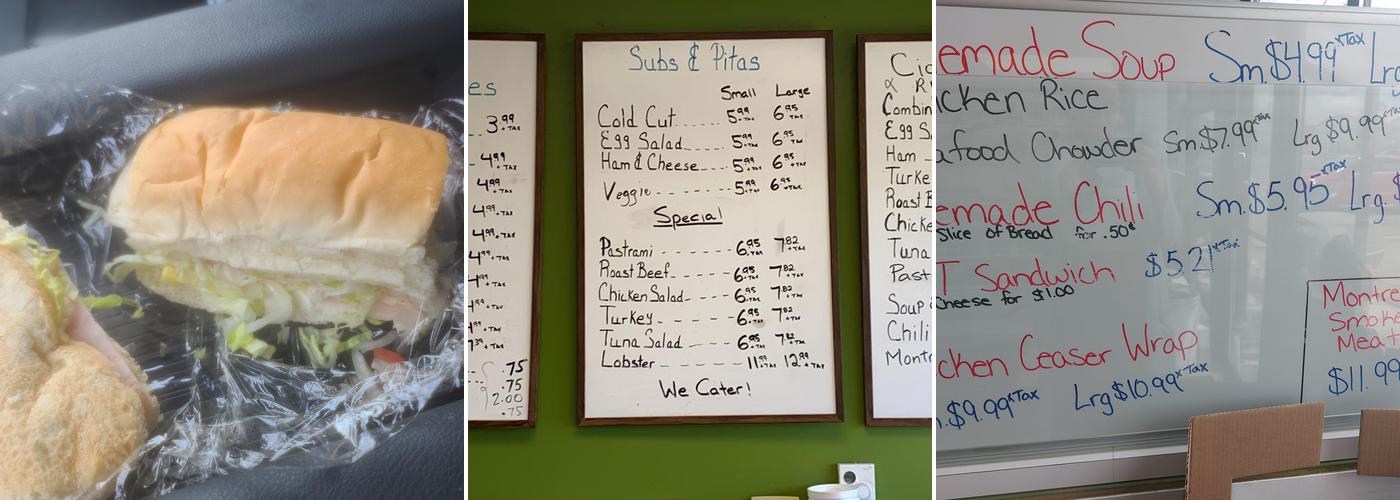 es
3.99 +TAX
4.99 +TAX
4.99 +TAX
4.99 +TAX
4.99 +TAX
4.99 +TAX
.75
.75
2.00
.75
Subs & Pitas
Small Large
Cold Cut..... 5.99 +TAX 6.95 +TAX
Egg Salad..... 5.99 +TAX 6.95 +TAX
Ham & Cheese..... 5.99 +TAX 6.95 +TAX
Veggie ----- 5.99 +TAX 6.95 +TAX
Special
Pastrami ----- 6.95 +TAX 7.82 +TAX
Roast Beef ----- 6.95 +TAX 7.82 +TAX
Chicken Salad ---- 6.95 +TAX 7.82 +TAX
Turkey ----- 6.95 +TAX 7.82 +TAX
Tuna Salad ----- 6.95 +TAX 7.82 +TAX
Lobster ----- 11.99 +TAX 12.99 +TAX
We Cater!
Combin
Egg S
Ham
Turke
Roast B
Chicke
Tuna
Past
Soup
Chili
Montr
emade Soup Sm.$4.99+Tax Lrg
icken Rice
afood Chowder Sm.$7.99+Tax Lrg $9.99+Tax
emade Chili Sm.$5.95+Tax Lrg.$
Slice of Bread for .50¢
T Sandwich $5.21+Tax
Cheese for $1.00
cken Ceaser Wrap
$9.99+Tax Lrg$10.99+Tax
Montre
Smoke
Meat
$11.99